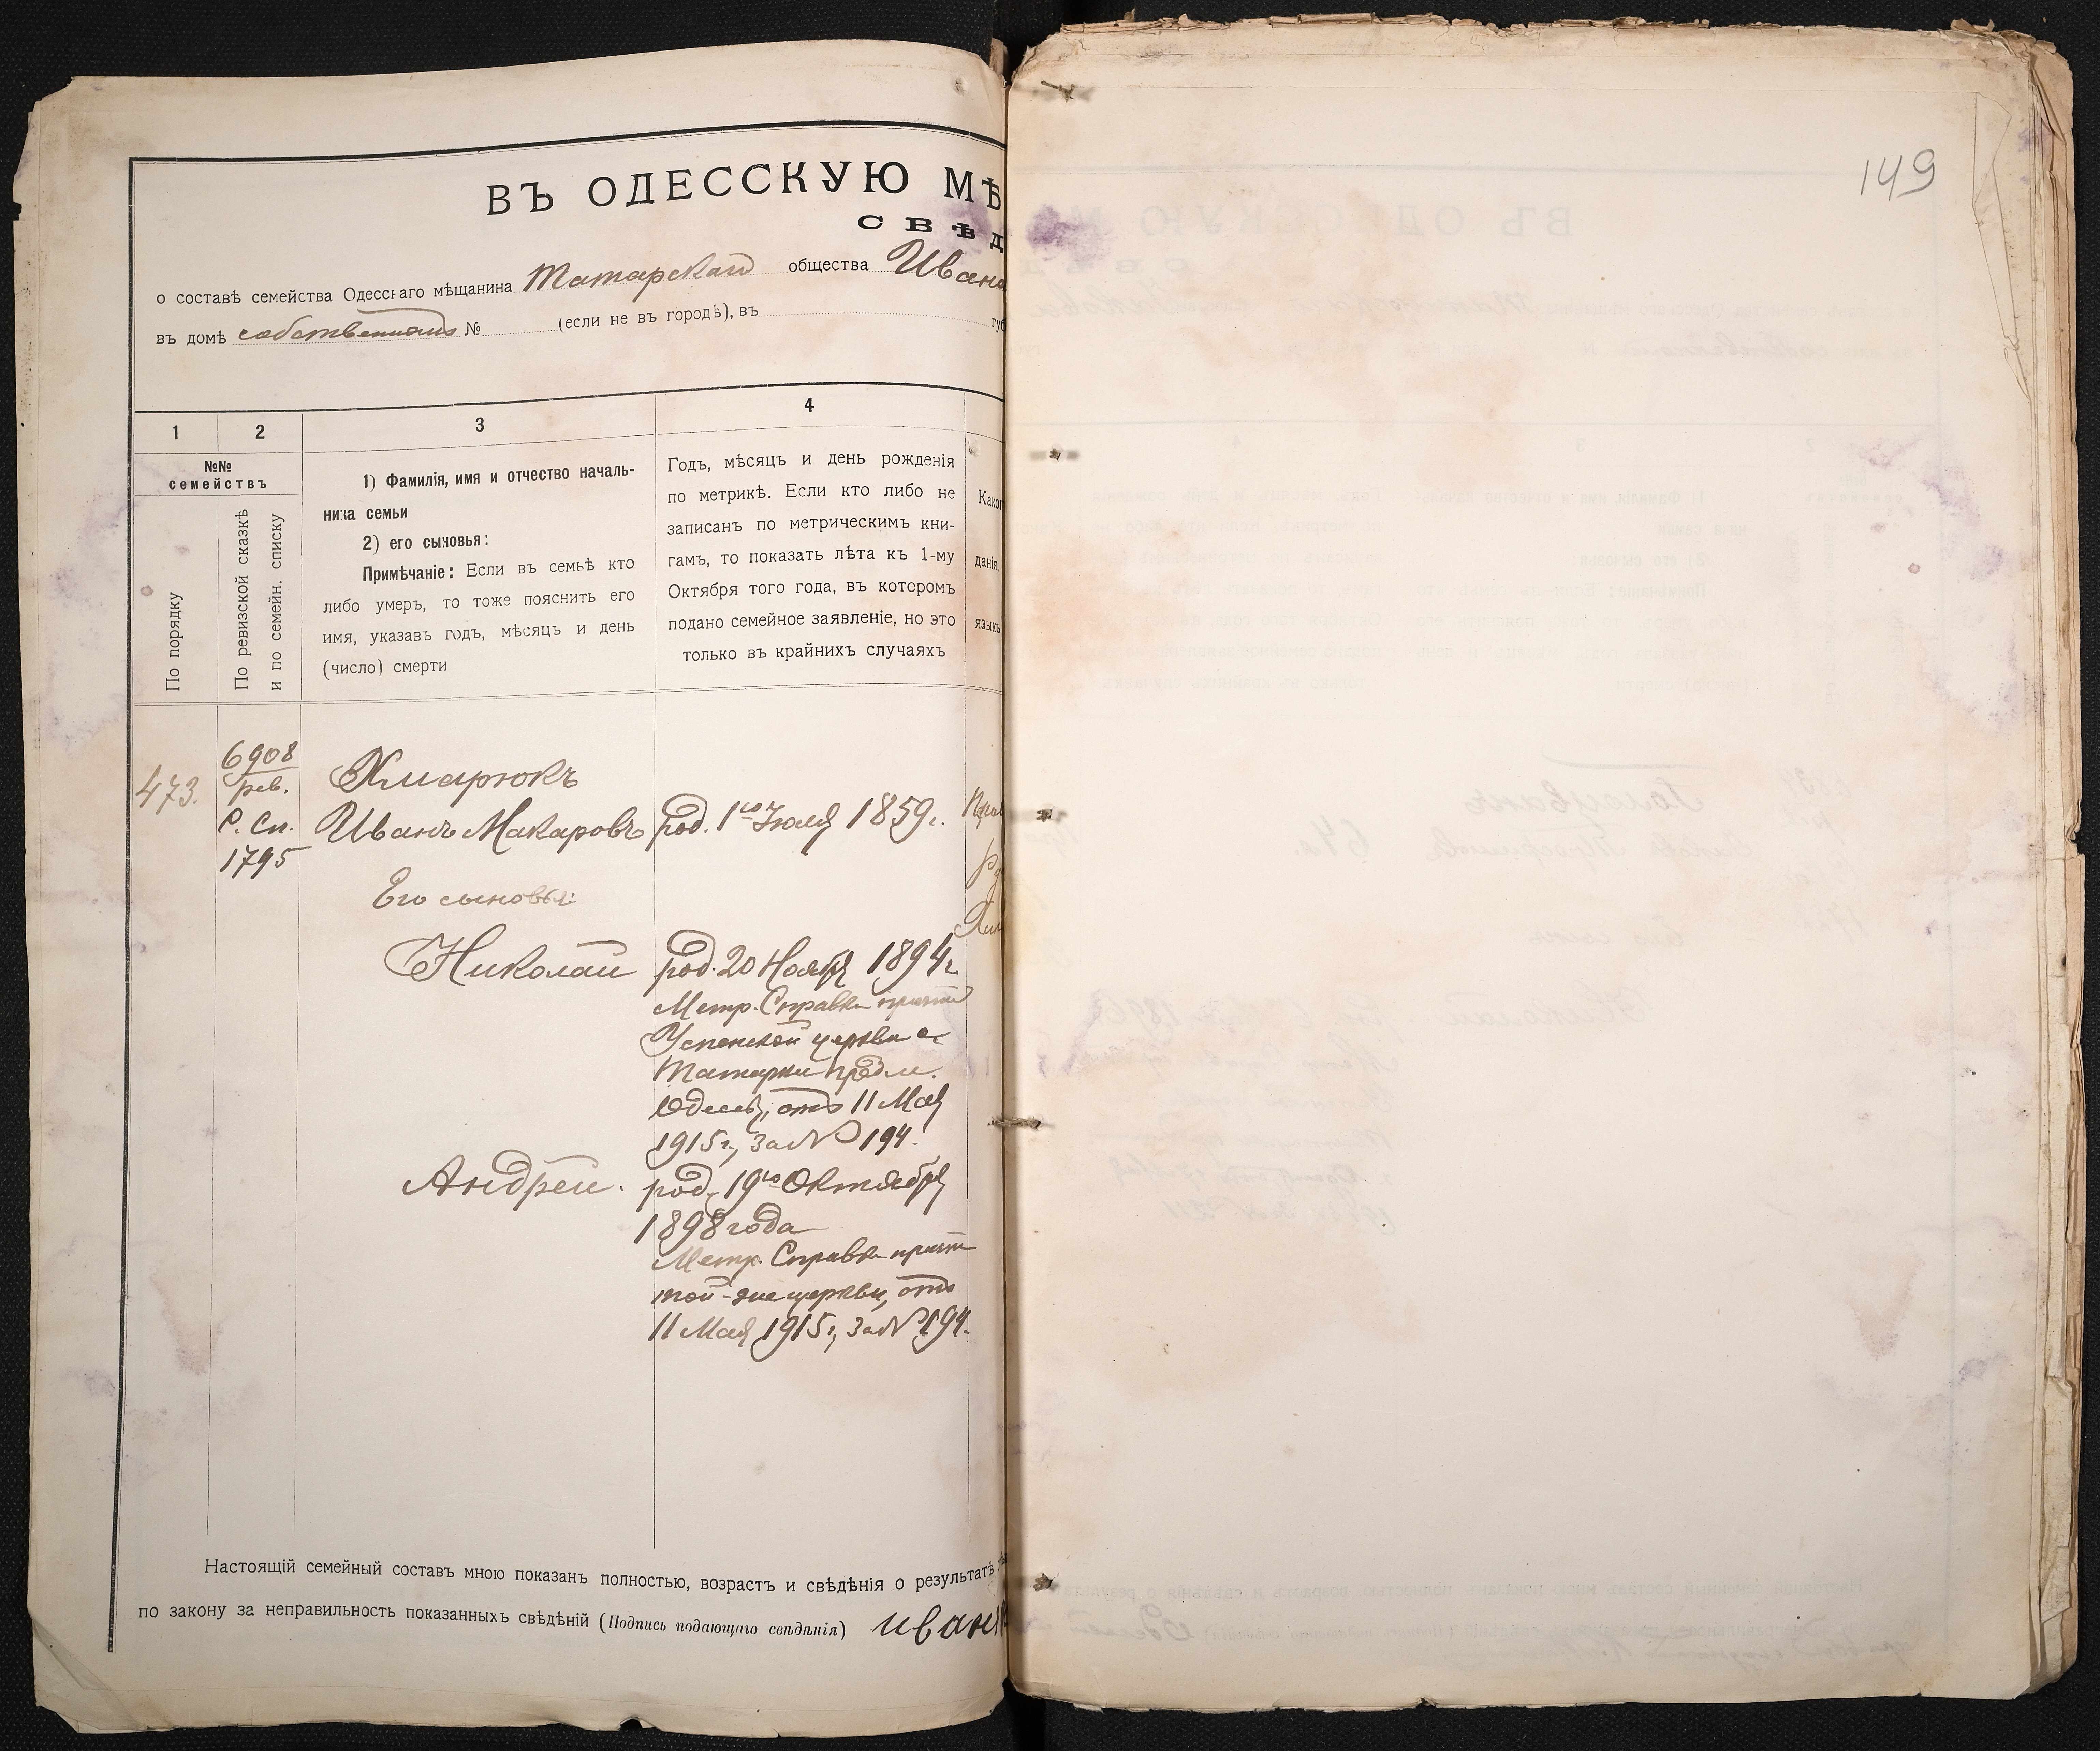 149
ВЪ ОДЕССКУЮ МѢ
СВѢД
о составѣ семейства Одесскаго мѣщанина Татарскаго общества Ивана
въ домѣ собственномъ № (если не въ городѣ), въ губ
1 2 3 4
№№ семействъ
По порядку
По ревизской сказкѣ и по семейн. списку
1) Фамилія, имя и отчество началь-
ника семьи
2) его сыновья:
Примѣчаніе: Если въ семьѣ кто
либо умеръ, то тоже пояснить его
имя, указавъ годъ, мѣсяцъ и день
(число) смерти
Годъ, мѣсяцъ и день рожденія
по метрикѣ. Если кто либо не
записанъ по метрическимъ кни-
гамъ, то показать лѣта къ 1-му
Октября того года, въ которомъ
подано семейное заявленіе, но это
только въ крайнихъ случаяхъ
Каког
данія,
языкъ
473.
6908
рев.
С. Сп.
1795
Хмарюкъ
Иванъ Макаровъ род. 1го Іюля 1859 г.
Его сыновья:
Николай род. 20 Ноября 1894 г.
Метр. Справка причта
Успенской церкви с.
Татарки предм.
Одессы, отъ 11 Мая
1915 г., за № 194.
Андрей. род. 19го Октября
1898 года
Метр. Справка причта
той-же церкви, отъ
11 Мая 1915 г., за № 194.
Настоящій семейный составъ мною показанъ полностью, возрастъ и свѣдѣнія о результатѣ
по закону за неправильность показанныхъ свѣдѣній (Подпись подающаго свѣдѣнія) иванъ